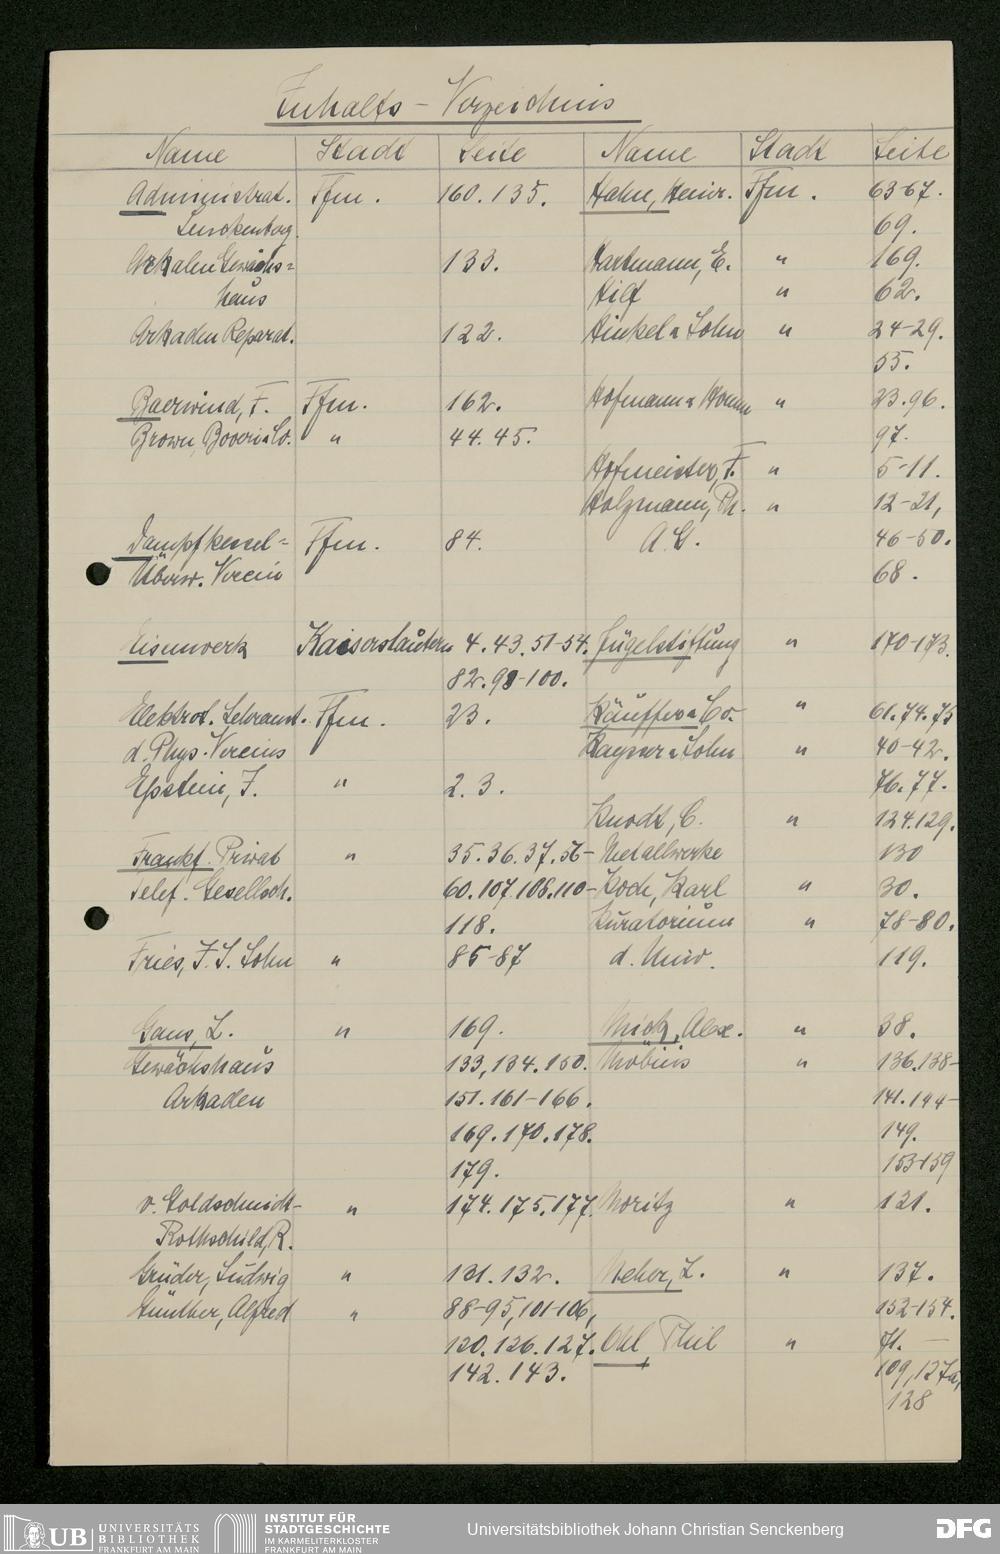 Inhalts-Verzeichnis
Name Stadt Seite Name Stadt Seite
Administrat. Ffm. 160. 135. Hahn, Heinr. Ffm. 63-67.
Senckenberg. 69.
Arkaden Gewächs= 133. Hartmann, E. " 169.
haus Hilf " 62.
Arkaden Reparat. 122. Hinkel u Sohn " 24-29.
55.
Baerwind, F. Ffm. 162. Hofmann u " 23.96.
Brown, Boveri u Co. " 44. 45. 97.
Hofmeister, F. " 5-11.
Holzmann, Ph. " 12-21,
Dampfkessel= Ffm. 84. A.G. 46-50.
Überw. Verein 68.
Eisenwerk Kaiserslautern 4. 43. 51-54. Jügelstiftung " 170-173.
82. 98-100.
Elektrot. Lehranst. Ffm. 23. Käuffer u Co. " 61. 74. 75
d. Phys. Vereins Kayser u Sohn " 40-42.
Epstein, J. " 2. 3. 76. 77.
Knodt, C. " 124. 129.
Frankf. Privat " 35. 36. 37. 56- Metallwerke 130
Telef. Gesellsch. 60. 107. 108. 110- Koch, Karl " 30.
118. Kuratorium " 78-80.
Fries, J. S. Sohn " 85-87 d. Univ. 119.
Gans, L. " 169. Alex. " 38.
Gewächshaus 133, 134. 150. Möbius " 136. 138-
Arkaden 151. 161-166. 141. 144-
169. 170. 178. 149.
179. 153-159
v. Goldschmidt- " 174. 175. 177. Moritz " 121.
Rothschild, R.
Grüder, Ludwig " 131. 132. L. " 137.
Günther, Alfred " 88-95, 101-106, 152-154.
120. 126. 127. Ohl, Phil " 71. —
142. 143. 109, 127a,
128
UB UNIVERSITÄTS
BIBLIOTHEK
FRANKFURT AM MAIN
INSTITUT FÜR
STADTGESCHICHTE
IM KARMELITERKLOSTER
FRANKFURT AM MAIN
Universitätsbibliothek Johann Christian Senckenberg
DFG